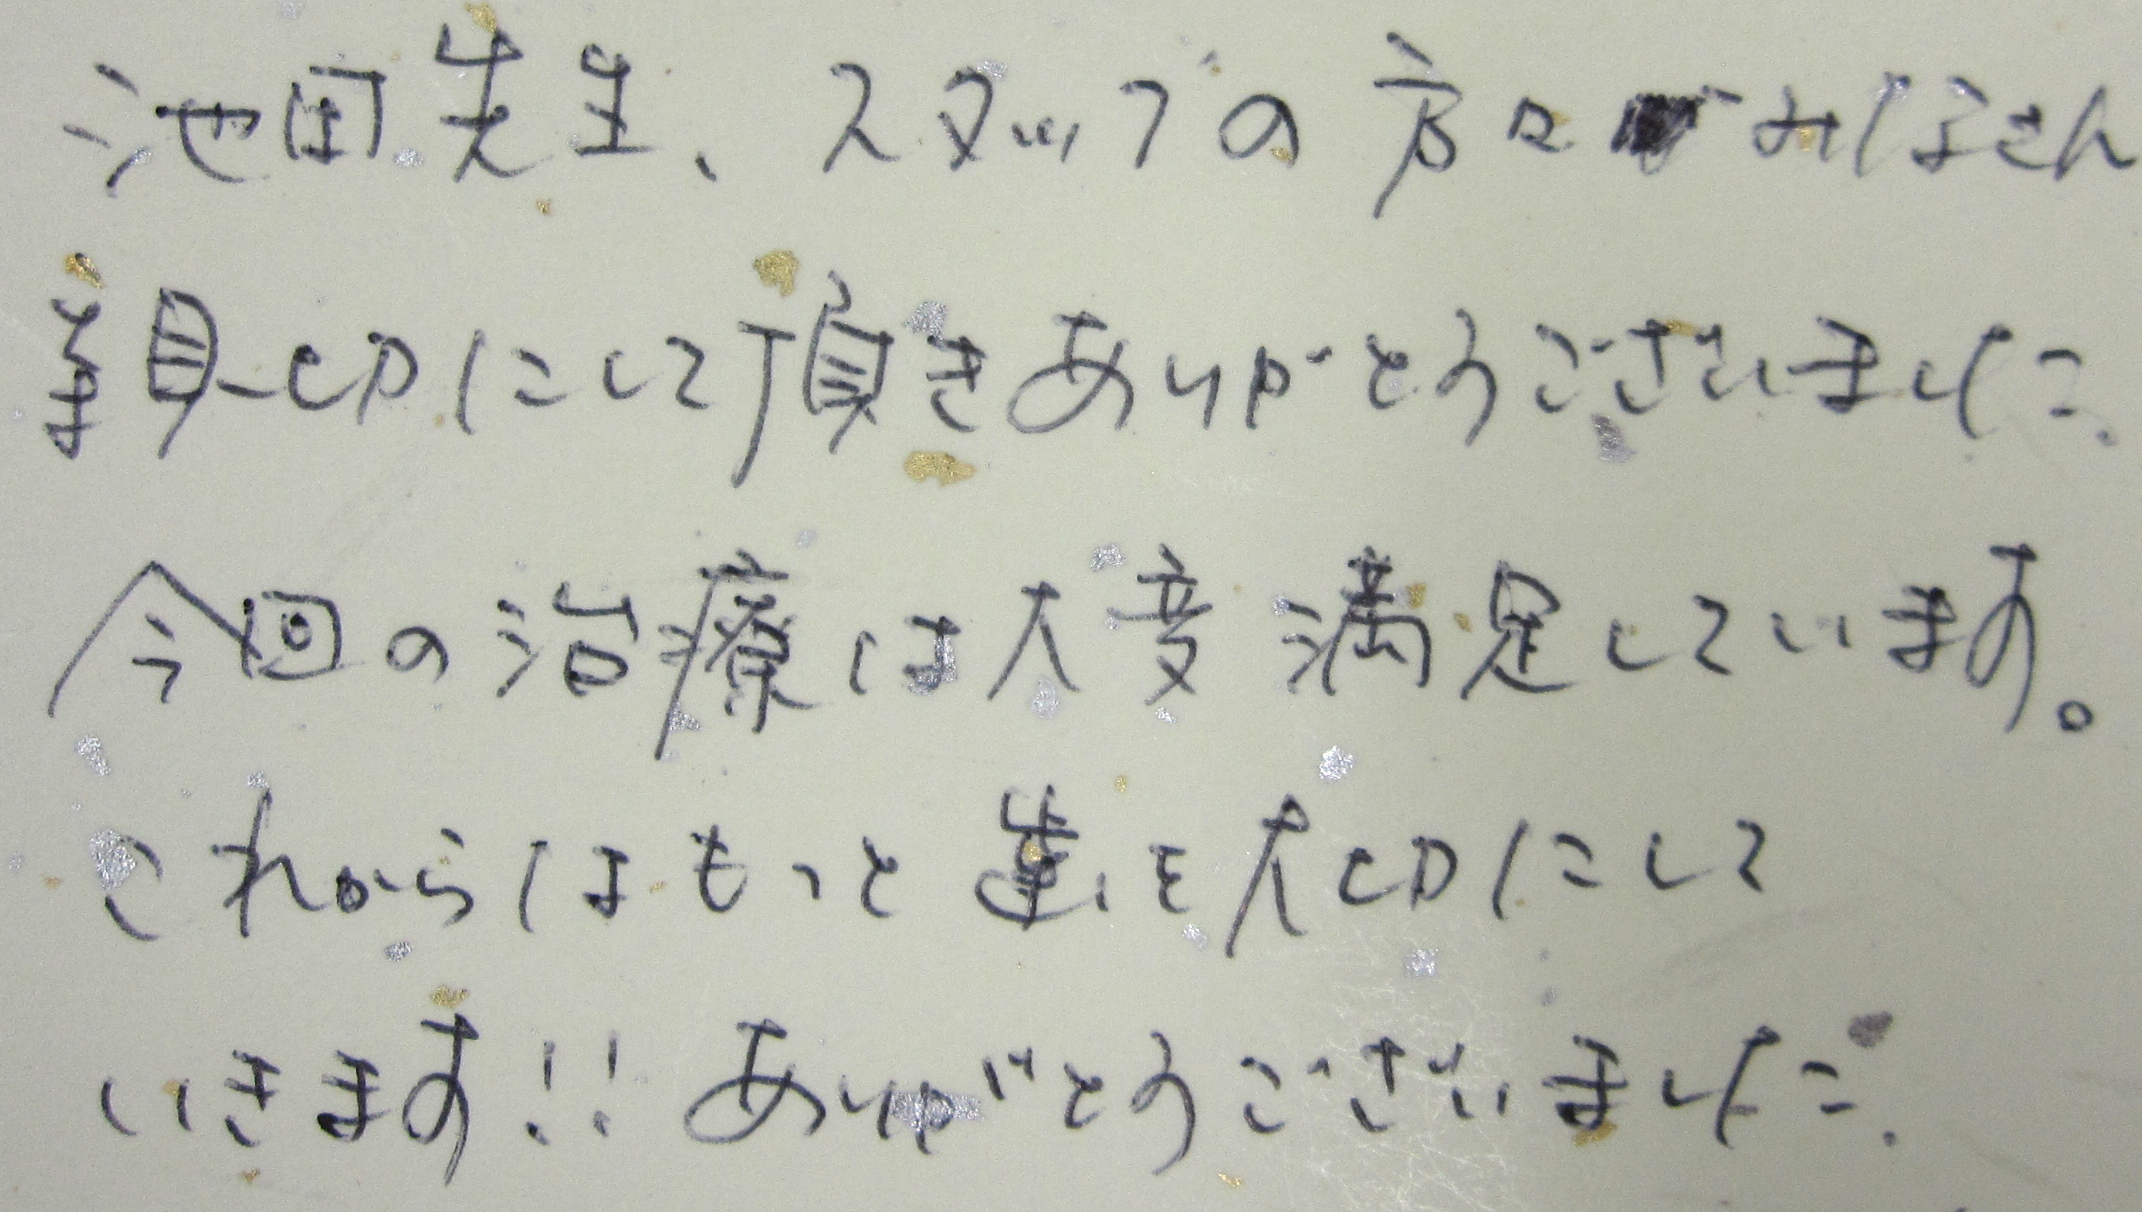 池田先生、スタッフの方々みなさん
親切にして頂きありがとうございました。
今回の治療は大変満足しています。
これからはもっと歯を大切にして
いきます!!ありがとうございました。